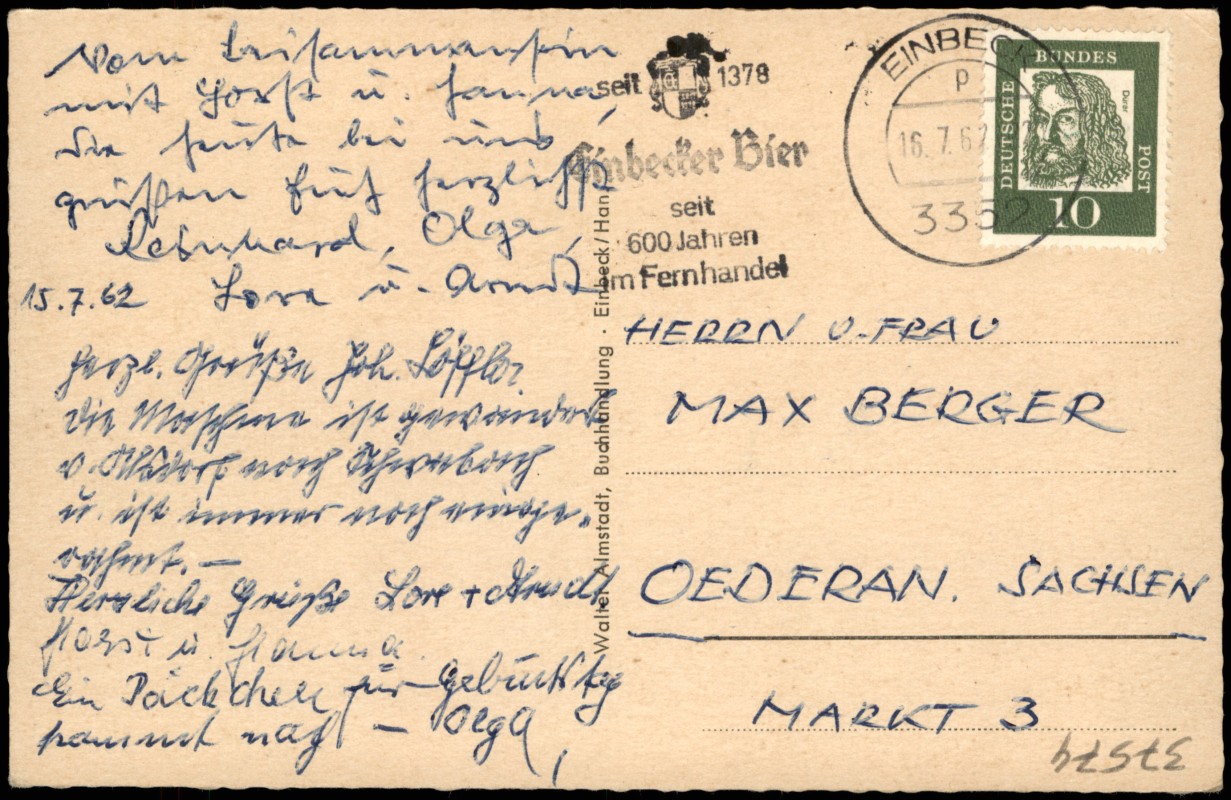 Vom Beisammensein
mit Horst u. Hanna,
die heute bei uns
grüßen Euch herzlichst
Reinhard, Olga,
15.7.62 Lore u. Arndt
herzl. Grüße Joh. Löffler
die Maschine ist gewandert
v. nach Schwabach
u. ist immer noch einge-
rahmt. —
Herzliche Grüße Lore + Arndt
Horst u. Hanna.
Ein Päckchen zur Geburtstag
kommt nach — Olga,
seit 1378
Einbecker Bier
seit
600 Jahren
im Fernhandel
EINBECK
p
16.7.62
3352
DEUTSCHE BUNDES POST
Dürer
10
Walter Almstadt, Buchhandlung · Einbeck/Han
HERRN U. FRAU
MAX BERGER
OEDERAN. SACHSEN
MARKT 3
37574